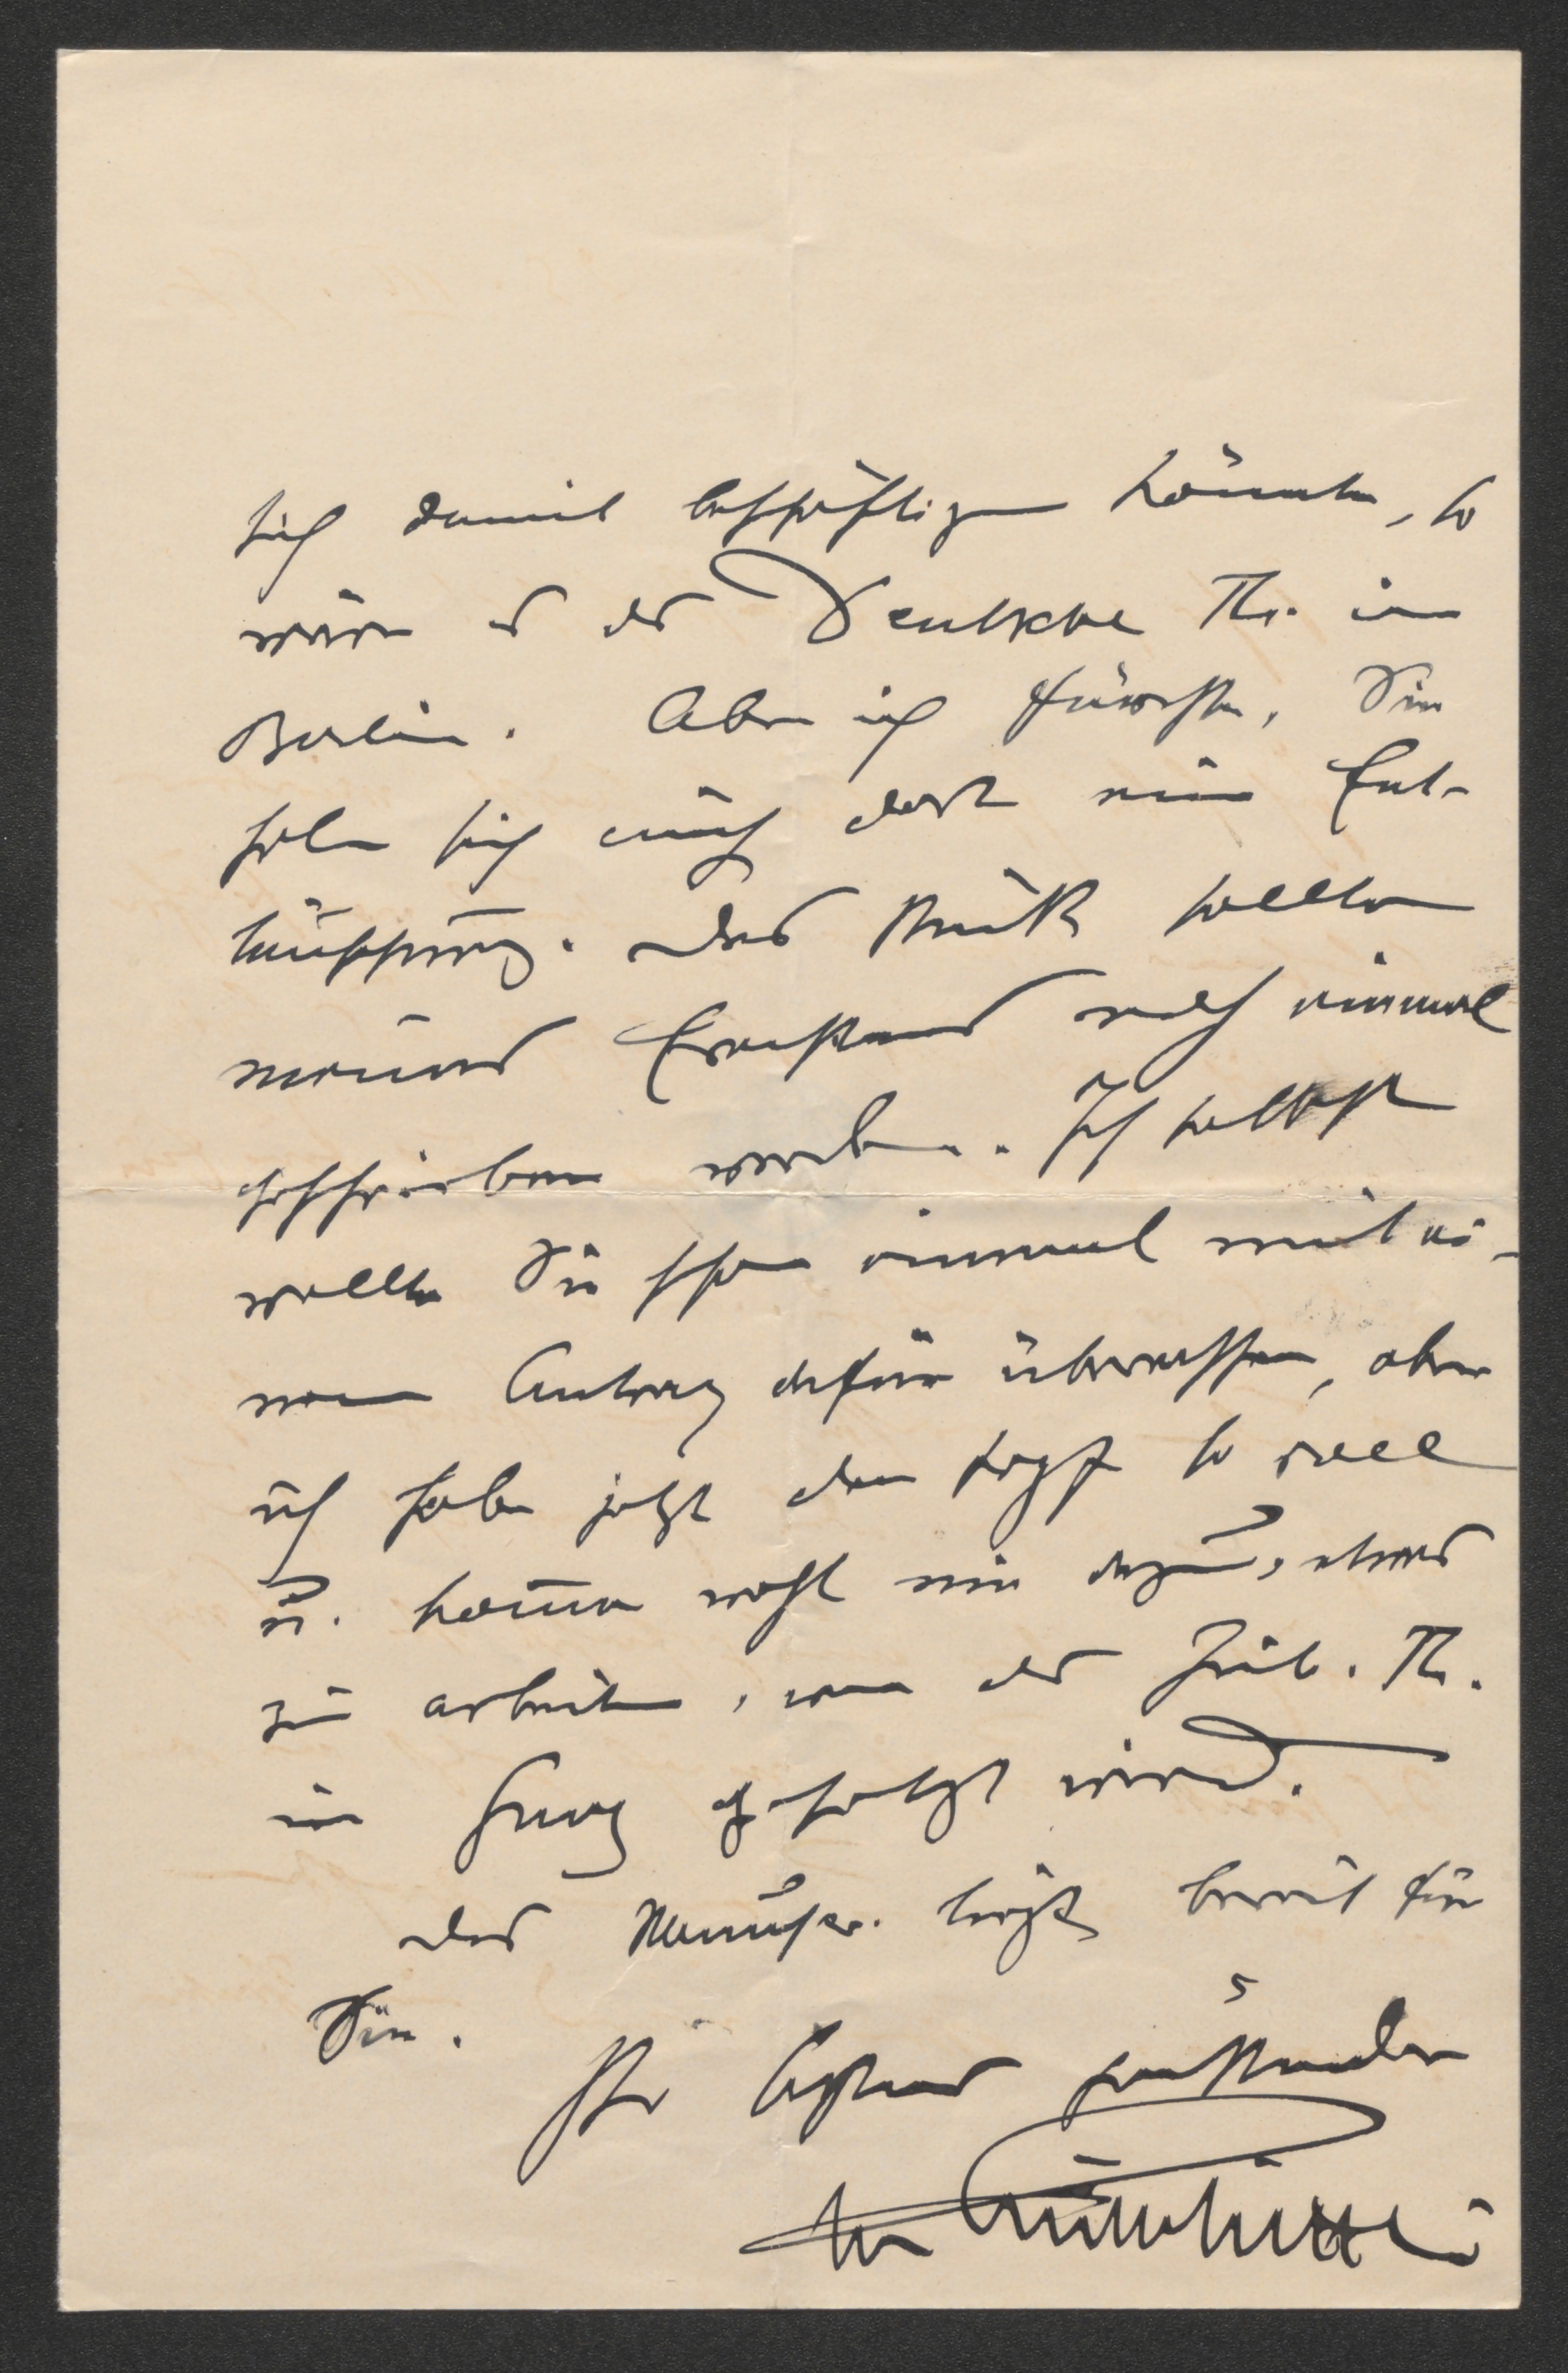 sich damit beschäftigen könnte, so
wäre es das Deutsche Th. in
Berlin. Aber ich fürchte, Sie
holen sich auch dort eine Ent-
täuschung. Das Stück sollte
meines Erachtens noch einmal
geschrieben werden. Ich selbst
wollte Sie schon einmal mit ei-
nem Antrag dafür überraschen, aber
ich habe jetzt den Kopf so voll
u. komme wohl nie dazu, etwas
zu arbeiten, wenn das Jub. Th.
in Gang gesetzt wird.
Das Manuscr. liegt bereit für
Sie.
Ihr ergebenst